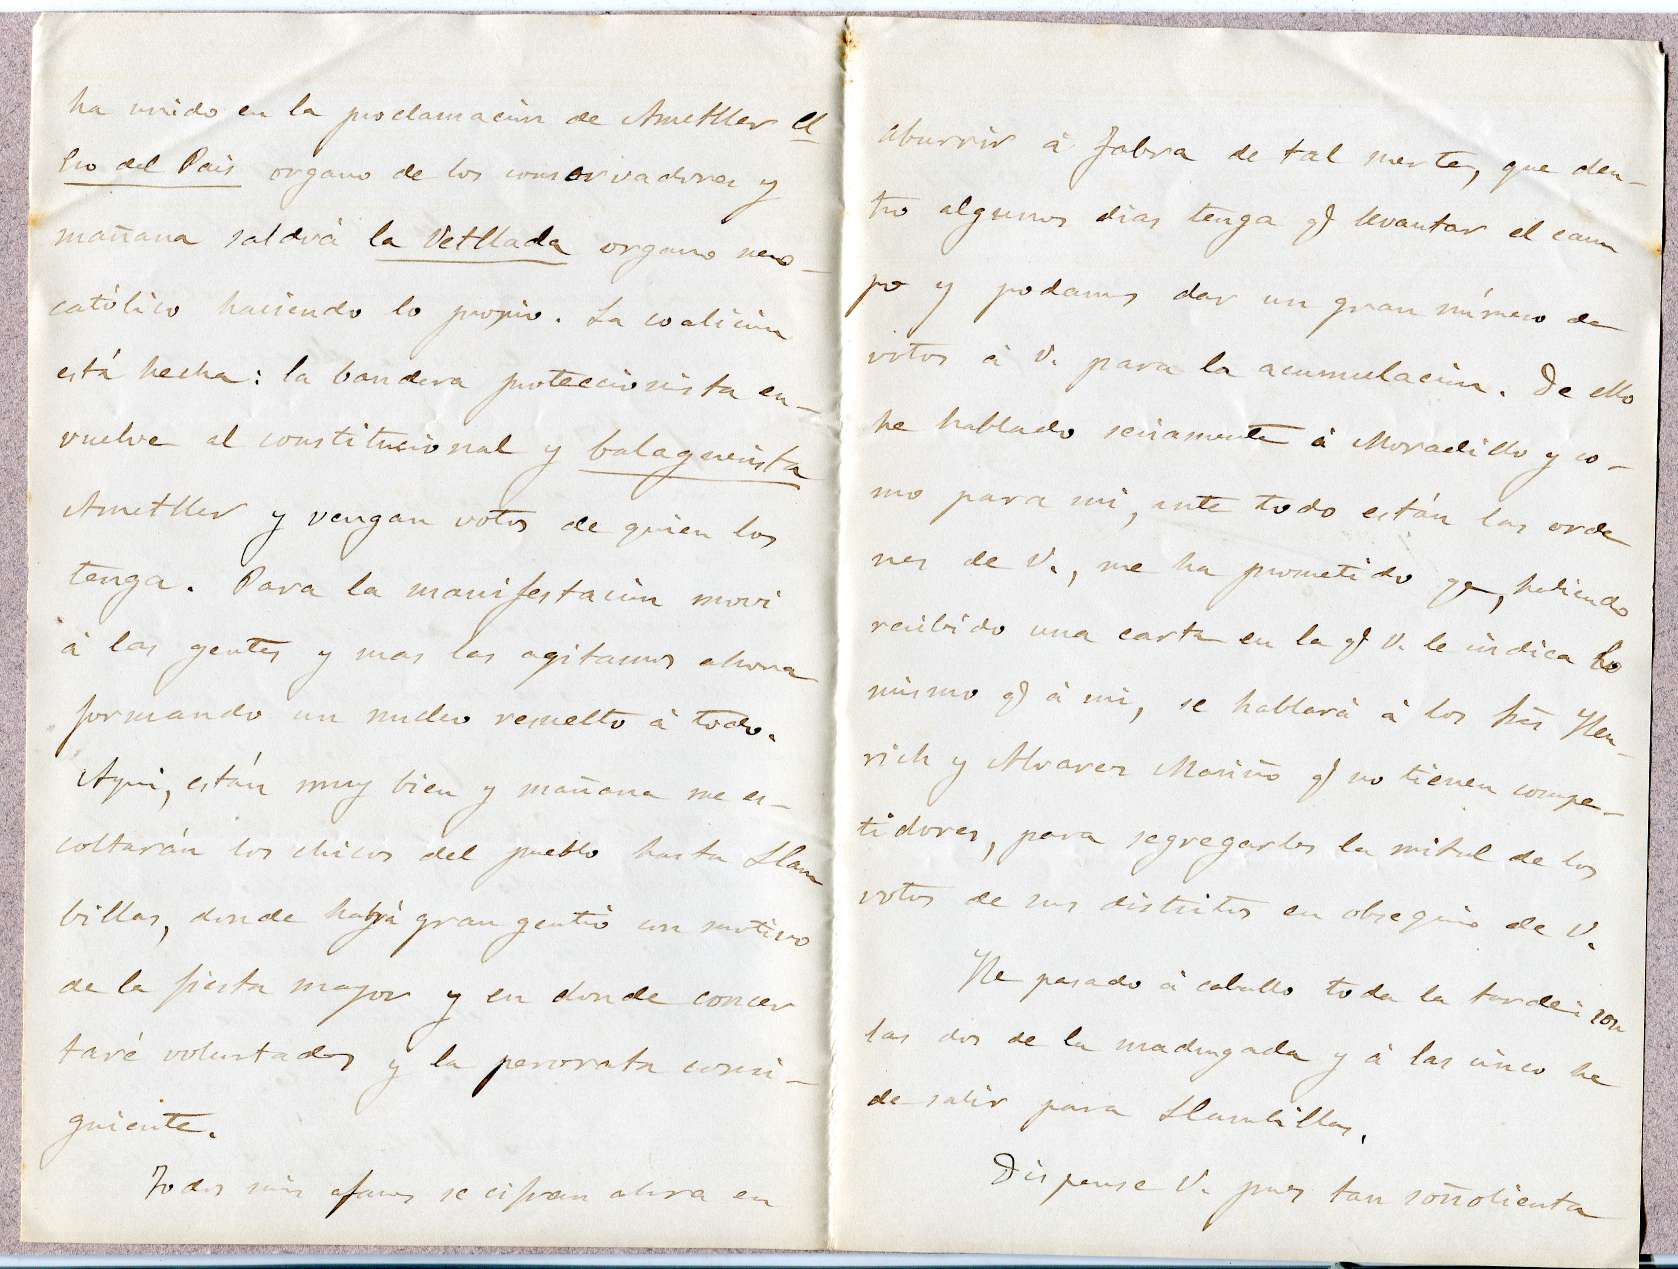 ha unido en la proclamación de Ametller el
Eco del País organo de los conservadores y
mañana saldrá la Vetllada organo neo-
católico haciendo lo propio. La coalición
está hecha: la bandera proteccionista en-
vuelve al constitucional y balaguerista
Ametller y vengan votos de quien los
tenga. Para la manifestación moví
á las gentes y mas las agitamos ahora
formando un nucleo resuelto á todo.
Aqui, están muy bien y mañana me es-
coltarán los chicos del pueblo hasta Llam
billas, donde habrá gran gentío con motivo
de la fiesta mayor y en donde concer
taré voluntades y la perorata consi-
guiente.
Todos mis afanes se cifran ahora en
aburrir á Fabra de tal suerte, que den-
tro algunos dias tenga qe levantar el cam
po y podamos dar un gran número de
votos á V. para la acumulación. De ello
he hablado seriamente á Moradillo y co-
mo para mi, ante todo están las orde
nes de V., me ha prometido qe, habiendo
recibido una carta en la qe V. le indica lo
mismo qe á mi, se hablará á los Sres Hen-
rich y Alvarez Mariño qe no tienen compe-
tidores, para segregarles la mitad de los
votos de sus distritos en obsequio de V.
He pasado á caballo toda la tarde: son
las dos de la madrugada y á las cinco he
de salir para Llambillas.
Dispense V. pues tan soñolienta